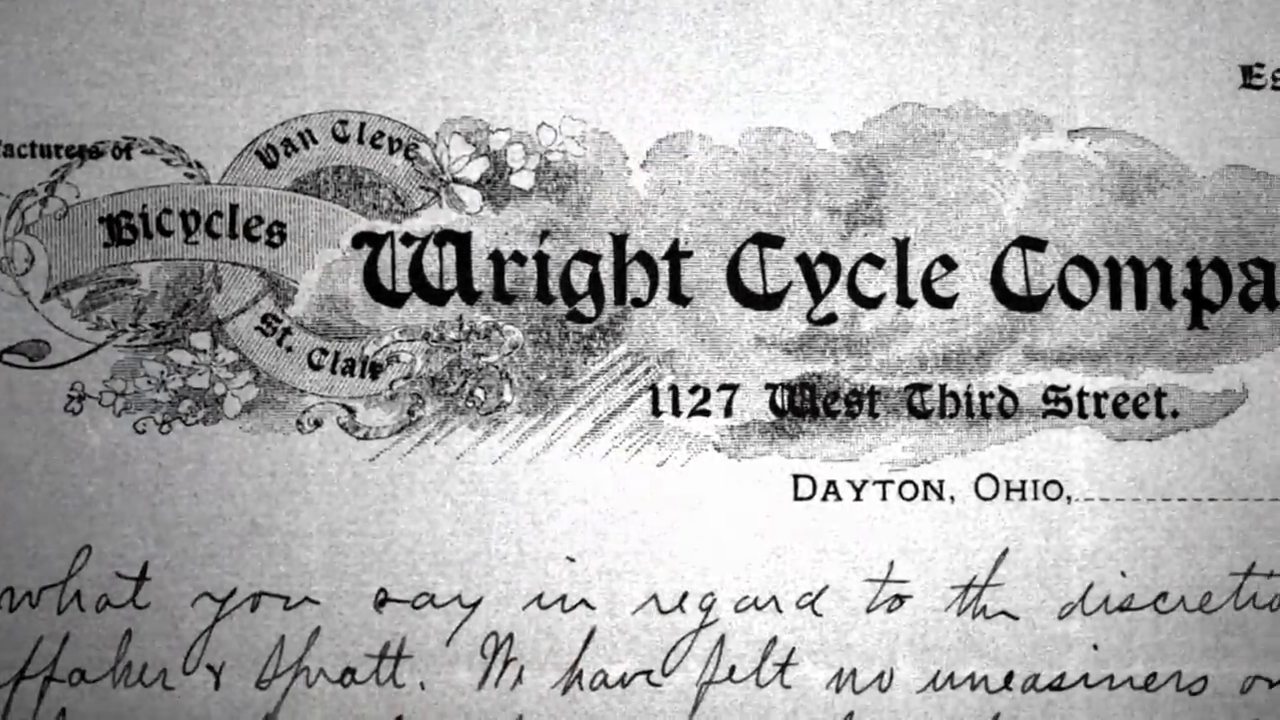 Es
facturers of
Van Cleve
Bicycles
St. Clair
Wright Cycle Compa
1127 West Third Street.
DAYTON, OHIO,
what you say in regard to the discretio
ffaker & Spratt. We have felt no uneasiness on